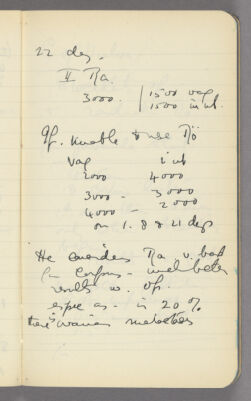 22 day.
II Ra
3000. | 1500 vag
1500 in ut.
If. unable to use Rö
Vag in ut
2000 4000
3000 - 3000
4000 - 2000
on 1. 8 & 21 days
He considers Ra v. bad
for Corpus - much better
results w. op.
espec as - in 20%
there's ovarian metastases